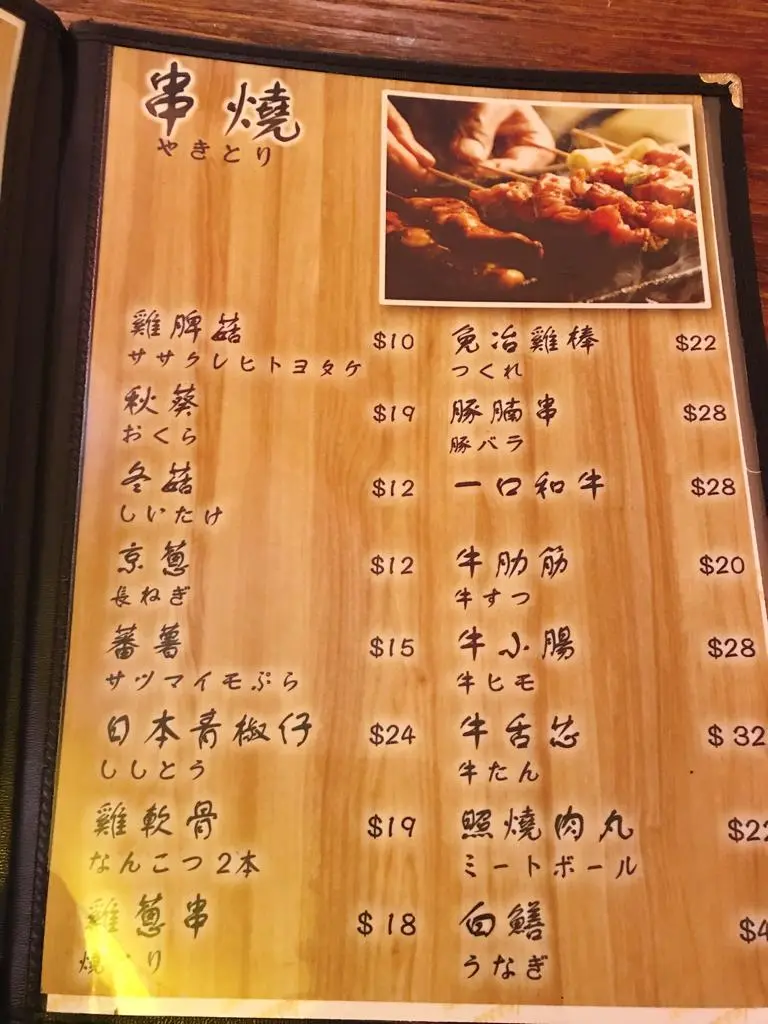 串燒
やきとり
雞脾菇 $10
ササクレヒトヨタケ
秋葵 $19
おくら
冬菇 $12
しいたけ
京蔥 $12
長ねぎ
蕃薯 $15
サツマイモぷら
日本青椒仔 $24
ししとう
雞軟骨 $19
なんこつ2本
雞蔥串 $18
焼 り
免治雞棒 $22
つくれ
豚腩串 $28
豚バラ
一口和牛 $28
牛肋筋 $20
牛すつ
牛小腸 $28
牛ヒモ
牛舌芯 $32
牛たん
照燒肉丸
ミートボール
白鱔
うなぎ